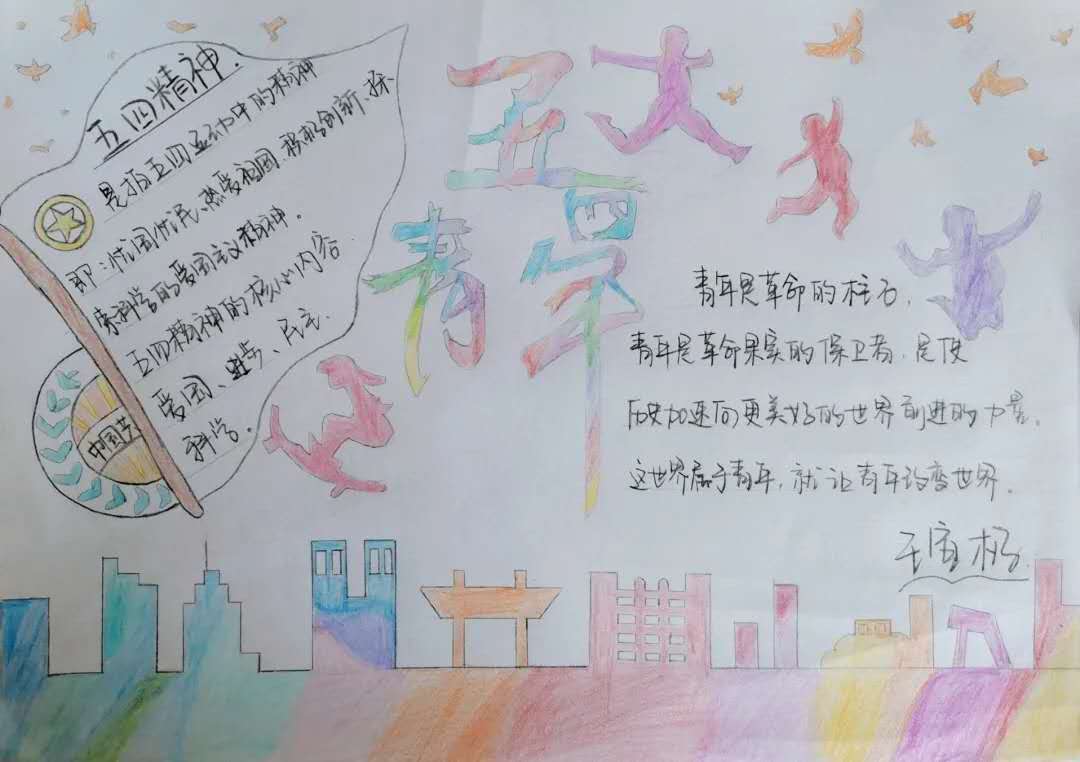 五四精神
是指五四运动中的精神
即:忧国忧民、热爱祖国、积极创新、探
索科学的爱国主义精神。
五四精神的核心内容
爱国、进步、民主、
科学。
中国梦
五四
青年
青年是革命的柱石,
青年是革命果实的保卫者,是使
历史加速向更美好的世界前进的力量。
这世界属于青年,就让青年改变世界。